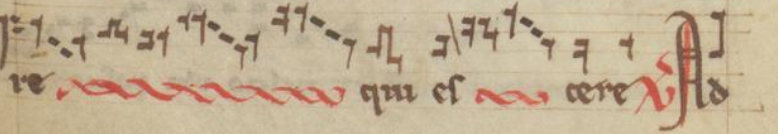 re qui es cere V Ad